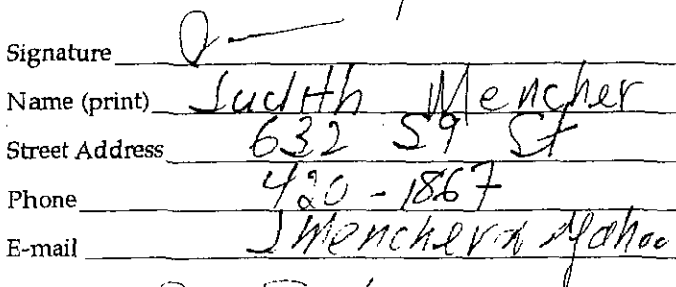 Signature
Name (print) Judith Mencher
Street Address 632 59 St
Phone 420-1867
E-mail JMencher@Yahoo